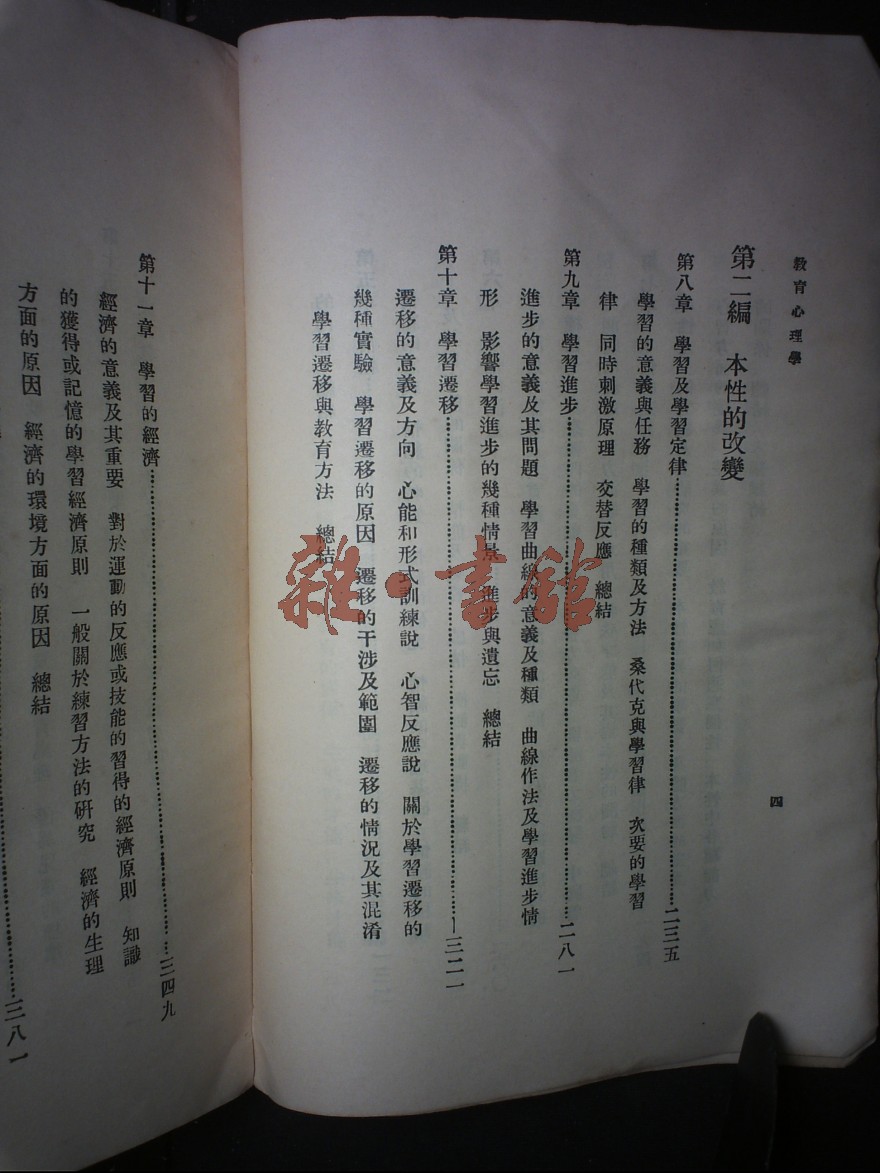 教育心理學
四
第二編　本性的改變
第八章　學習及學習定律……二三五
學習的意義與任務　學習的種類及方法　桑代克與學習律　次要的學習
律　同時刺激原理　交替反應　總結
第九章　學習進步……二八一
進步的意義及其問題　學習曲線的意義及種類　曲線作法及學習進步情
形　影響學習進步的幾種情景　進步與遺忘　總結
第十章　學習遷移……三二一
遷移的意義及方向　心能和形式訓練說　心智反應說　關於學習遷移的
幾種實驗　學習遷移的原因　遷移的干涉及範圍　遷移的情況及其混淆
學習遷移與教育方法　總結
第十一章　學習的經濟……三四九
經濟的意義及其重要　對於運動的反應或技能的習得的經濟原則　知識
的獲得或記憶的學習經濟原則　一般關於練習方法的研究　經濟的生理
方面的原因　經濟的環境方面的原因　總結
……三八一
雜·書館